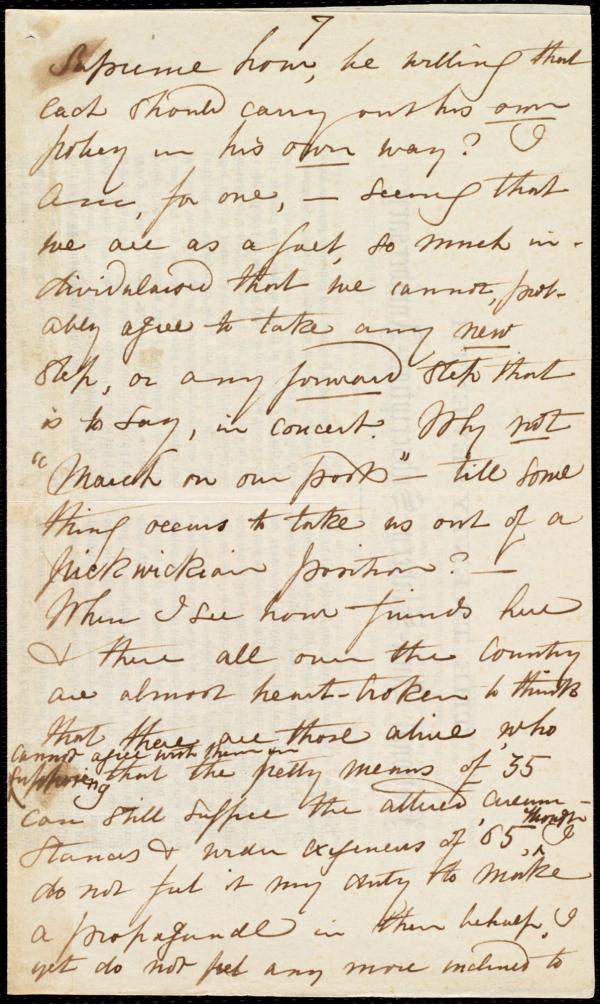 7
Supreme hour, be willing that
each should carry out his own
policy in his own way? I
am, for one, — seeing that
we are as a fact, so much in-
dividualised that we cannot, prob-
ably agree to take any new
step, or any forward step that
is to say, in concert. Why not
"March on our post" — till some
thing occurs to take us out of a
Pickwickian position? —
When I see how friends here
& there all over the Country
are almost heart-broken to think
that there are those alive, who
cannot agree with them in
supposing that the petty means of '35
can still suffice the altered circum-
stances & wider exigencies of '65, though I
do not feel it my duty to make
a propagande in their behalf, I
yet do not feel any more inclined to